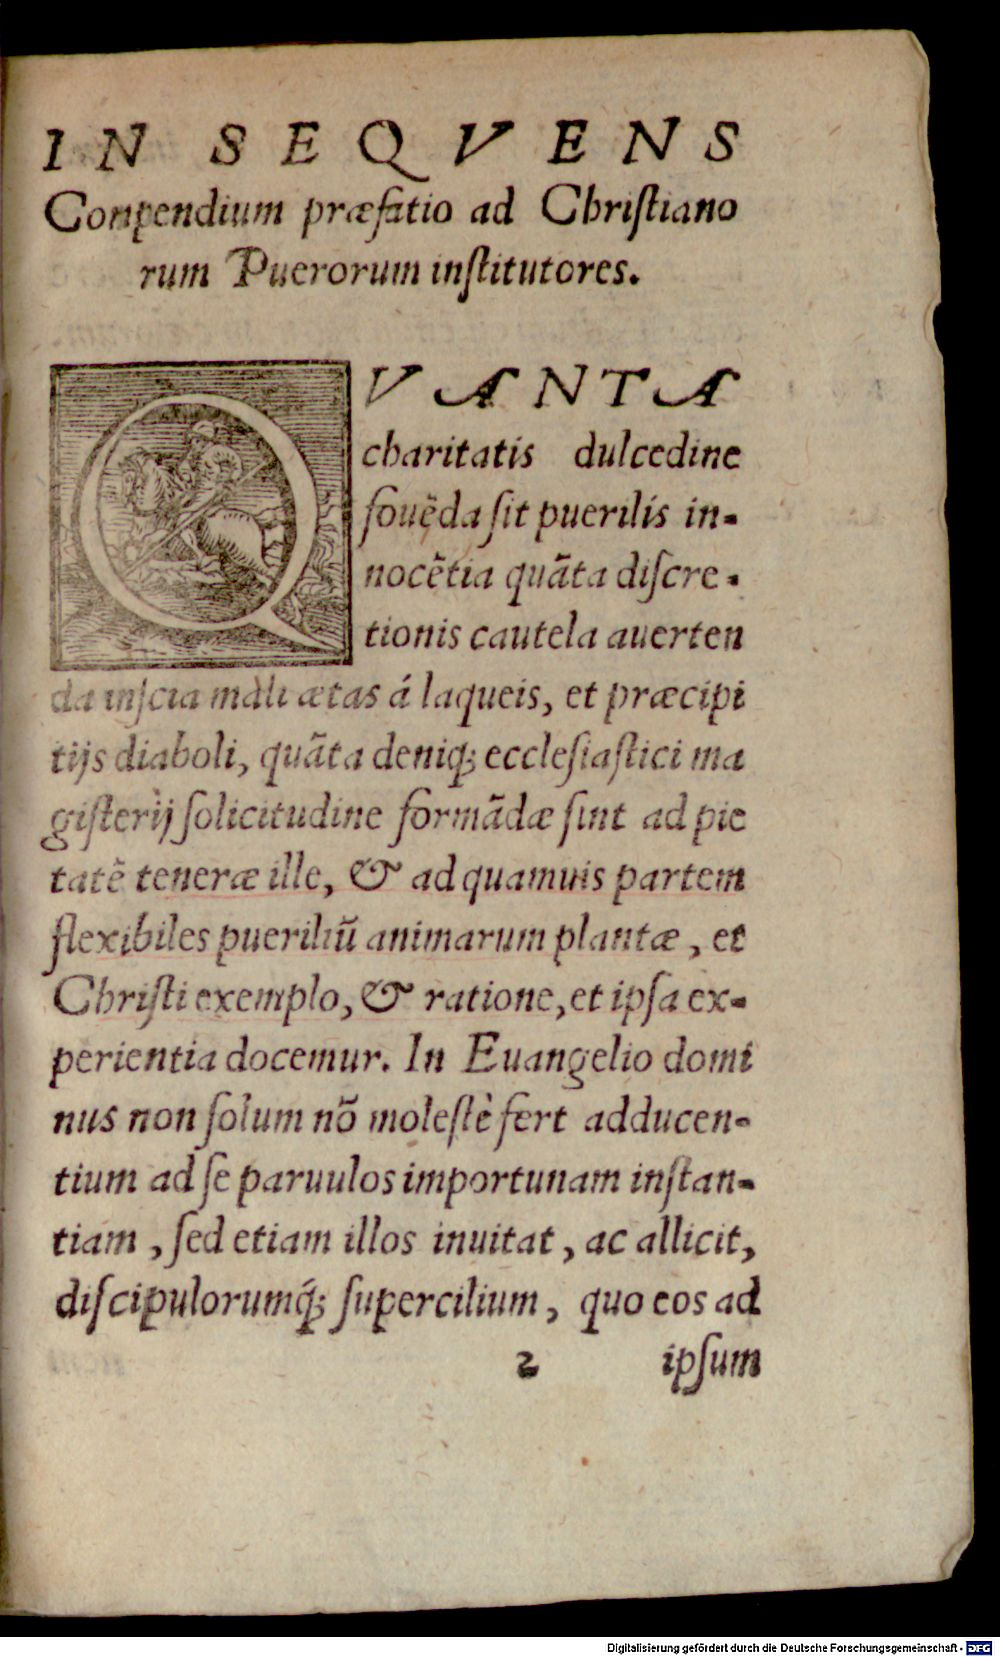 IN SEQVENS
Conpendium præfatio ad Christiano
rum Puerorum institutores.
QVANTA
charitatis dulcedine
fouẽda sit puerilis in-
nocẽtia quãta discre-
tionis cautela auerten
da inscia mali ætas á laqueis, et præcipi
tijs diaboli, quãta deniq; ecclesiastici ma
gisterij solicitudine formãdæ sint ad pie
tatẽ teneræ ille, & ad quamuis partem
flexibiles pueriliũ animarum plantæ, et
Christi exemplo, & ratione, et ipsa ex-
perientia docemur. In Euangelio domi
nus non solum nõ molestè fert adducen-
tium ad se paruulos importunam instan-
tiam, sed etiam illos inuitat, ac allicit,
discipulorumq́; supercilium, quo eos ad
2 ipsum
Digitalisierung gefördert durch die Deutsche Forschungsgemeinschaft - DFG